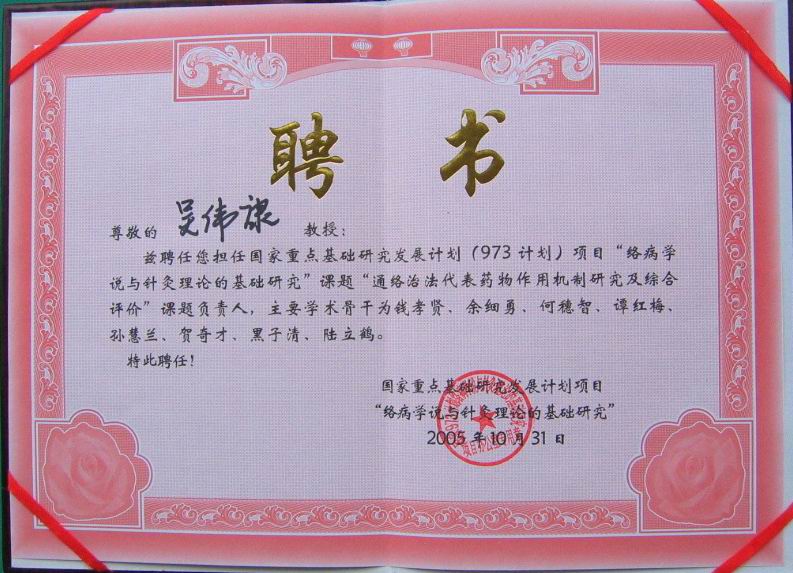 聘 书
尊敬的 吴伟康 教授：
兹聘任您担任国家重点基础研究发展计划（973 计划）项目“络病学
说与针灸理论的基础研究”课题“通络治法代表药物作用机制研究及综合
评价”课题负责人，主要学术骨干为钱孝贤、余细勇、何穗智、谭红梅、
孙慧兰、贺奇才、黑子清、陆立鹤。
特此聘任！
国家重点基础研究发展计划项目
“络病学说与针灸理论的基础研究”
2005 年 10 月 31 日